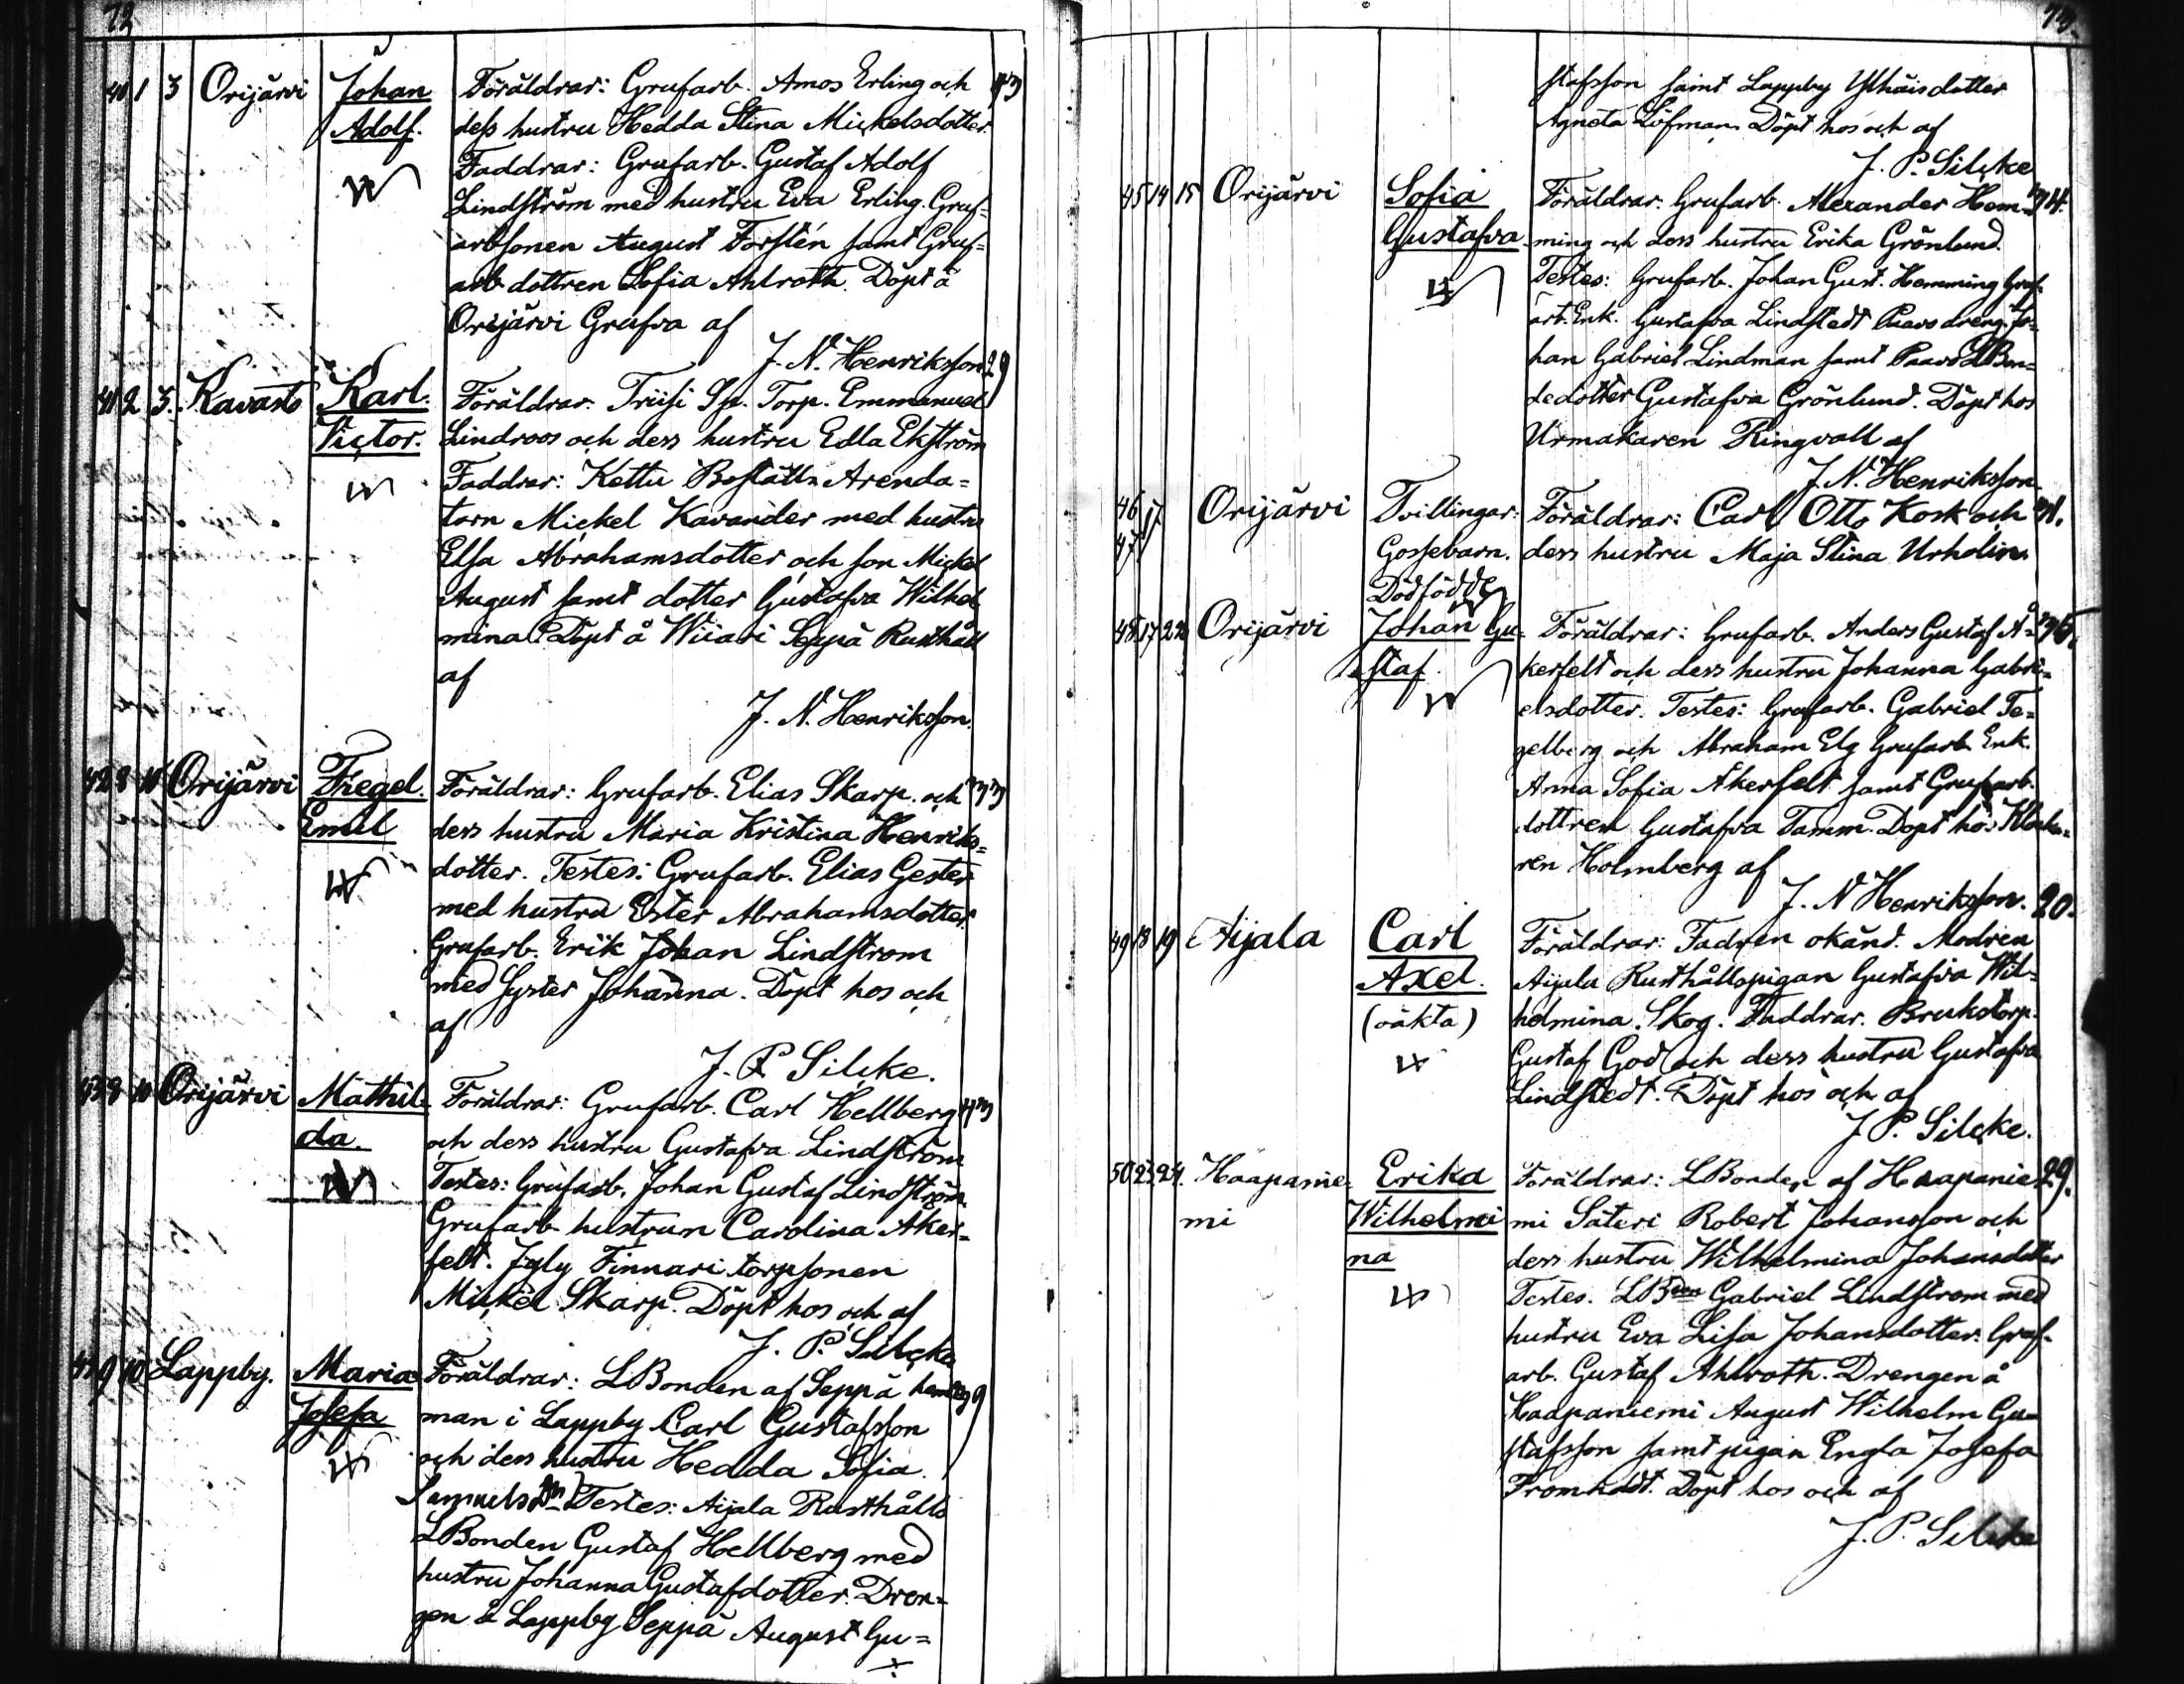 72
40 1 3 Orijärvi Johan Föräldrar: Grufarb. Amos Erling och
Adolf. dess hustru Hedda Stina Mickelsdotter.
Faddrar: Grufarb. Gustaf Adolf
Lindström med hustru Eva Erling. Gruf=
arbsonen August Forstén samt Gruf=
arb dottren Sofia Ahlroth. Döpt å
Orijärvi Grufva af
J. N. Henriksson
41 2 3. Kavasto Karl. Föräldrar. Torp. Emmanuel 29
Victor. Lindroos och dess hustru Edla Ekström
Faddrar: Kettu Boställs Arenda=
torn Mickel Kavander med hustru
Elsa Abrahamsdotter och son Mickel
August samt dotter Gustafva Wilhel
mina. Döpt å Wiiari Seppä Rusthåll
af
J. N. Henriksson.
42 8 10 Orijärvi Fregel. Föräldrar: Grufarb. Elias Skarp. och
Emil dess hustru Maria Kristina Henriks=
dotter. Testes: Grufarb. Elias Gester
med hustru Ester Abrahamsdotter.
Grufarb. Erik Johan Lindström
med syster Johanna. Döpt hos och
af
J. P. Silcke.
43 8 10 Orijärvi Mathil= Föräldrar: Grufarb. Carl Hellberg
da. och dess hustru Gustafva Lindström
Testes: Grufarb. Johan Gustaf Lindström.
Grufarb. hustrun Carolina Åker=
felt. Jyly Finnari torpsonen
Mickel Skarp. Döpt hos och af
J. P. Silcke
44 9 10 Lappby. Maria Föräldrar: LBonden af Seppä hem
Josefa man i Lappby Carl Gustafsson
och dess hustru Hedda Sofia
Samuelsdtr. Testes: Aijala Rusthålls
LBonden Gustaf Hellberg med
hustru Johanna Gustafdotter. Dren=
gen å Lappby Seppä August Gu=
73.
stafsson samt Lappby dotter
Agneta Löfman. Döpt hos och af
J. P. Silcke
45 14 15 Orijärvi Sofia Föräldrar: Grufarb. Alexander Hem=
Gustafva ming och dess hustru Erika Grönlund.
Testes: Grufarb. Johan Gust. Hemming Gruf-
arb. Enk. Gustafva Lindstedt Paavo dreng. Jo=
han Gabriel Lindman samt Paavo LBon=
dedotter Gustafva Grönlund. Döpt hos
Urmakaren Ringvall af
J. N. Henriksson.
46 17 Orijärvi Tvillingar: Föräldrar: Carl Otto Kosk och
47 Gossebarn. dess hustru Maja Stina Urholin.
Dödfödde
48 17 22 Orijärvi Johan Gu- Föräldrar: Grufarb. Anders Gustaf Å=
staf. kerfelt och dess hustru Johanna Gabri=
elsdotter. Testes: Grufarb. Gabriel Te=
gelberg och Abraham Elg Grufarb. Enk.
Anna Sofia Åkerfelt samt Grufarb.
dottren Gustafva Tamm. Döpt hos Klocka=
ren Holmberg af
J. N. Henriksson.
49 18 19 Aijala Carl Föräldrar: Fadren okänd. Modren 20.
Axel. Aijala Rusthållspigan Gustafva Wil=
(oäkta) helmina Skog. Faddrar. Brukstorp.
Gustaf God och dess hustru Gustafva
Lindstedt. Döpt hos och af
J. P. Silcke.
50 23 24. Haapanie= Erika Föräldrar: LBonden af Haapanie 29.
mi Wilhelmi mi Säteri Robert Johansson och
na dess hustru Wilhelmina Johansdotter
Testes. LBden Gabriel Lindström med
hustru Eva Lisa Johansdotter. Gruf-
arb. Gustaf Ahlroth. Drengen å
Haapaniemi August Wilhelm Gu=
stafsson samt pigan Engla Josefa
Fromholdt. Döpt hos och af
J. P. Silcke